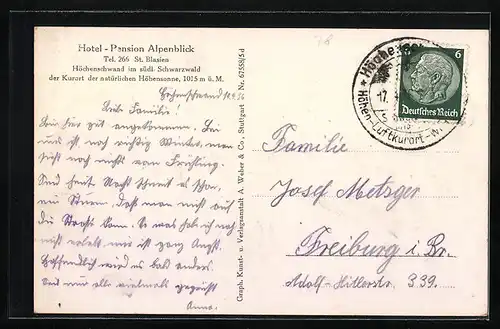 Hotel - Pension Alpenblick
Tel. 266 St. Blasien
Höchenschwand im südl. Schwarzwald
der Kurort der natürlichen Höhensonne, 1015 m ü. M.
Höchenschwand
Liebe Familie!
Bin hier gut angekommen. Bei
uns ist noch richtig Winter, man
sieht noch nichts vom Frühling.
Und heut Nacht schneit es schon,
ein Sturm, dass man nicht auf
die Straße kann. So was hab ich noch
nicht erlebt, mir ist ganz Angst.
Hoffentlich wird es bald anders.
Seid nun alle vielmals gegrüßt
Anna.
Graph. Kunst- u. Verlagsanstalt A. Weber & Co., Stuttgart Z Nr. 67558/5d
Höchens
17.
Höhen-Luftkurort
6
Deutsches Reich
Familie
Josef Metzger
Freiburg i. Br.
Adolf-Hitlerstr. 339.